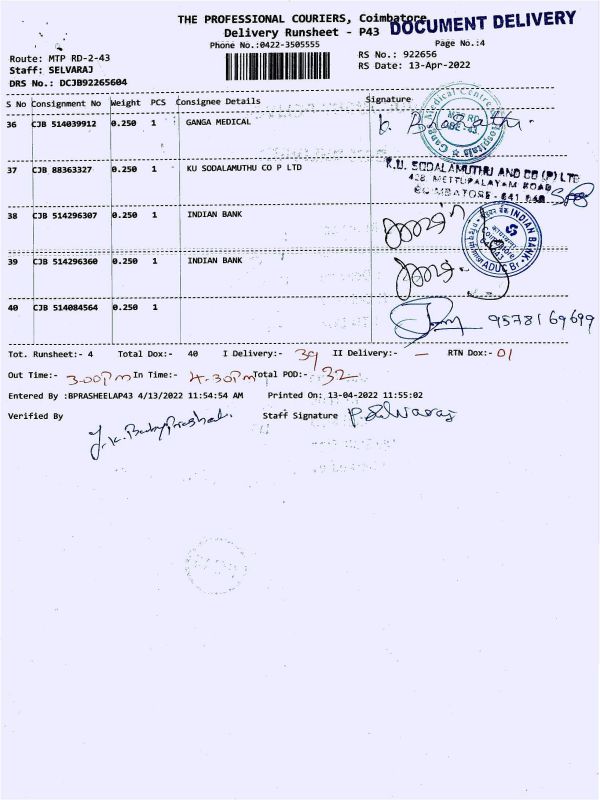 THE PROFESSIONAL COURIERS, Coimbatore
DOCUMENT DELIVERY
Delivery Runsheet - P43
Phone No.:0422-3505555
Page No.:4
Route: MTP RD-2-43
RS No.: 922656
Staff: SELVARAJ
RS Date: 13-Apr-2022
DRS No.: DCJB92265604
S No Consignment No Weight PCS Consignee Details Signature
36 CJB 514039912 0.250 1 GANGA MEDICAL
37 CJB 88363327 0.250 1 KU SODALAMUTHU CO P LTD
K.U. SODALAMUTHU AND CO (P) LTD
428, METTUPALAYAM ROAD
COIMBATORE - 641 043
38 CJB 514296307 0.250 1 INDIAN BANK
INDIAN BANK
39 CJB 514296360 0.250 1 INDIAN BANK
40 CJB 514084564 0.250 1
9578169699
Tot. Runsheet:- 4 Total Dox:- 40 I Delivery:- 39 II Delivery:- — RTN Dox:- 01
Out Time:- 3.00Pm In Time:- 4.30Pm Total POD:- 32
Entered By :BPRASHEELAP43 4/13/2022 11:54:54 AM Printed On: 13-04-2022 11:55:02
Verified By Staff Signature P. Selvaraj